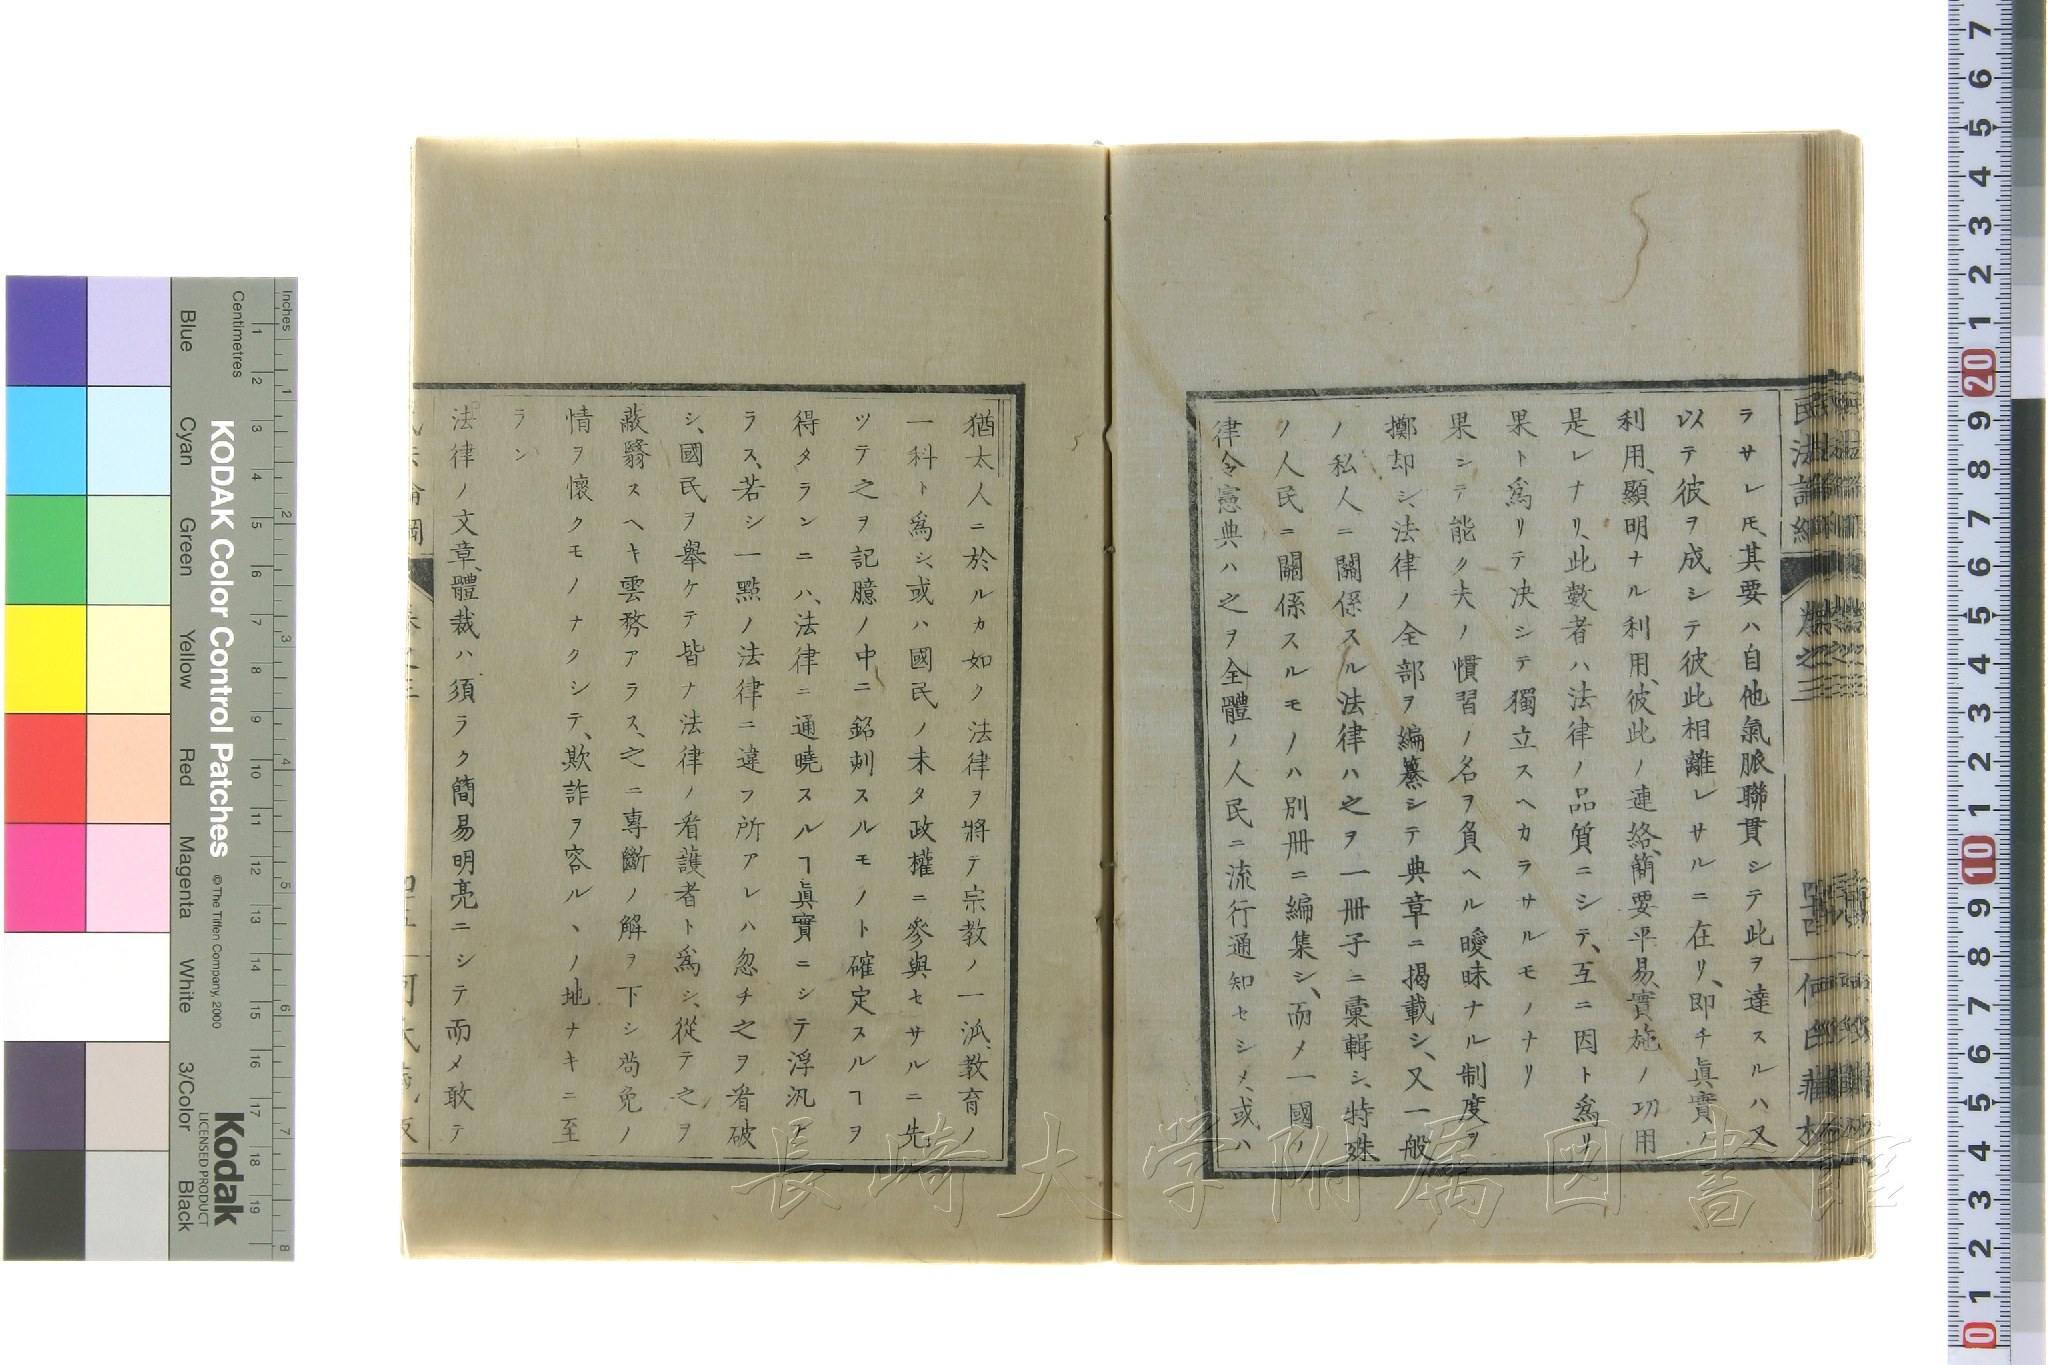 ラサレ𪜈、其要ハ自他氣脈聯貫シテ此ヲ達スルハ又
以テ彼ヲ成シテ彼此相離レサルニ在リ、即チ眞實ノ
利用、顯明ナル利用、彼此ノ連絡、簡要平易、實施ノ功用
是レナリ、此數者ハ法律ノ品質ニシテ、互ニ因ト爲リ
果ト爲リテ决シテ獨立スヘカラサルモノナリ
果シテ能ク夫ノ慣習ノ名ヲ負ヘル曖昧ナル制度ヲ
擲却シ、法律ノ全部ヲ編纂シテ典章ニ揭載シ、又一般
ノ私人ニ關係スル法律ハ之ヲ一冊子ニ彙輯シ、特殊
ノ人民ニ關係スルモノハ別冊ニ編集シ、而メ一國ノ
律令憲典ハ之ヲ全體ノ人民ニ流行通知セシメ、或ハ
猶太人ニ於ルカ如ク法律ヲ將テ宗教ノ一派、教育ノ
一科ト爲シ、或ハ國民ノ未タ政權ニ參與セサルニ先
ツテ之ヲ記臆ノ中ニ銘刻スルモノト確定スルヿヲ
得タランニハ、法律ニ通曉スルヿ眞實ニシテ浮汎ナ
ラス、若シ一點ノ法律ニ違フ所アレハ忽チ之ヲ看破
シ、國民ヲ舉ケテ皆ナ法律ノ看護者ト爲シ、從テ之ヲ
蔽翳スヘキ雲霧アラス、之ニ專斷ノ解ヲ下シ苟免ノ
情ヲ懷クモノナクシテ、欺詐ヲ容ルヽノ地ナキニ至
ラン
法律ノ文章、體裁ハ須ラク簡易明亮ニシテ而メ敢テ
長崎大学附属図書館
KODAK Color Control Patches
© The Tiffen Company, 2000
Kodak
LICENSED PRODUCT
Inches
Centimetres
Blue
Cyan
Green
Yellow
Red
Magenta
White
3/Color
Black